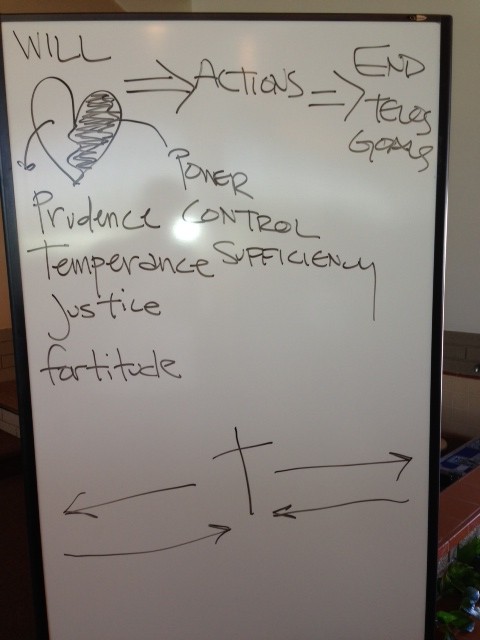 WILL
ACTIONS
END
telos
GOALS
POWER
Prudence CONTROL
Temperance SUFFICIENCY
Justice
fortitude